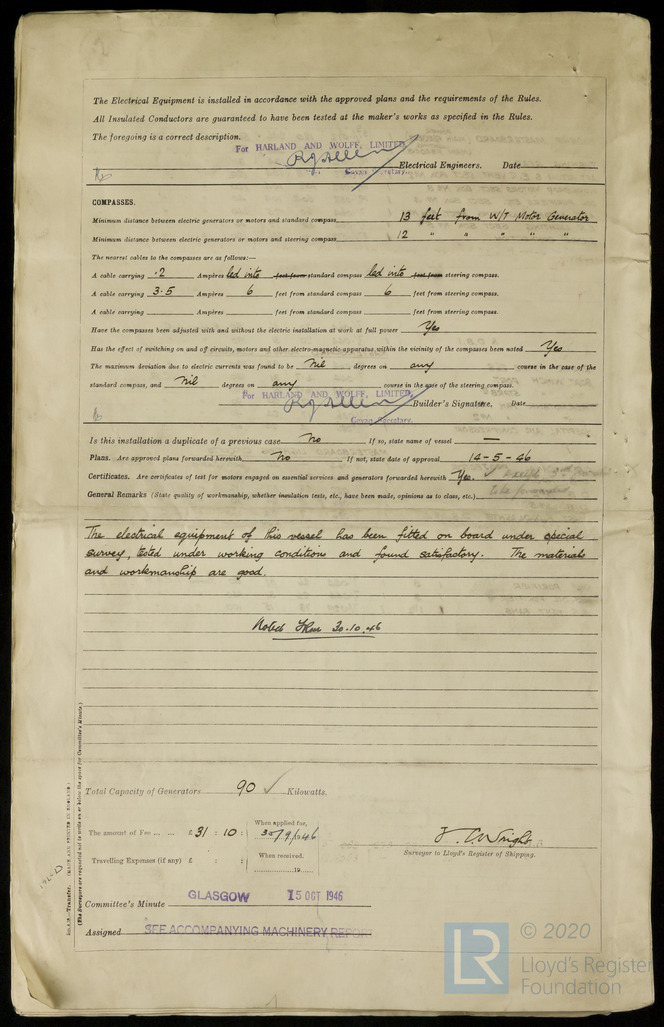 The Electrical Equipment is installed in accordance with the approved plans and the requirements of the Rules.
All Insulated Conductors are guaranteed to have been tested at the maker's works as specified in the Rules.
The foregoing is a correct description.
For HARLAND AND WOLFF, LIMITED,
Electrical Engineers. Date
Govan Secretary.
COMPASSES.
Minimum distance between electric generators or motors and standard compass 13 feet from W/T Motor Generator
Minimum distance between electric generators or motors and steering compass 12 " " " " "
The nearest cables to the compasses are as follows:—
A cable carrying .2 Ampères led into feet from standard compass led into feet from steering compass.
A cable carrying 3.5 Ampères 6 feet from standard compass 6 feet from steering compass.
A cable carrying Ampères feet from standard compass feet from steering compass.
Have the compasses been adjusted with and without the electric installation at work at full power Yes
Has the effect of switching on and off circuits, motors and other electro-magnetic apparatus within the vicinity of the compasses been noted Yes
The maximum deviation due to electric currents was found to be Nil degrees on any course in the case of the
standard compass, and Nil degrees on any course in the case of the steering compass.
For HARLAND AND WOLFF, LIMITED,
Builder's Signature. Date
Govan Secretary.
Is this installation a duplicate of a previous case No If so, state name of vessel —
Plans. Are approved plans forwarded herewith No If not, state date of approval 14-5-46
Certificates. Are certificates of test for motors engaged on essential services and generators forwarded herewith Yes.
General Remarks (State quality of workmanship, whether insulation tests, etc., have been made, opinions as to class, etc.)
The electrical equipment of this vessel has been fitted on board under special
survey, tested under working conditions and found satisfactory. The materials
and workmanship are good.
Noted 30.10.46
Total Capacity of Generators 90 ✓ Kilowatts.
The amount of Fee ... ... £31 : 10 : When applied for, 30/9/1946
Travelling Expenses (if any) £ : : When received, 19
J. C. Wright
Surveyor to Lloyd's Register of Shipping.
Committee's Minute GLASGOW 15 OCT 1946
Assigned SEE ACCOMPANYING MACHINERY REPORT
(The Surveyors are requested not to write on or below the space for Committee's Minute.)
LR © 2020
Lloyd's Register
Foundation